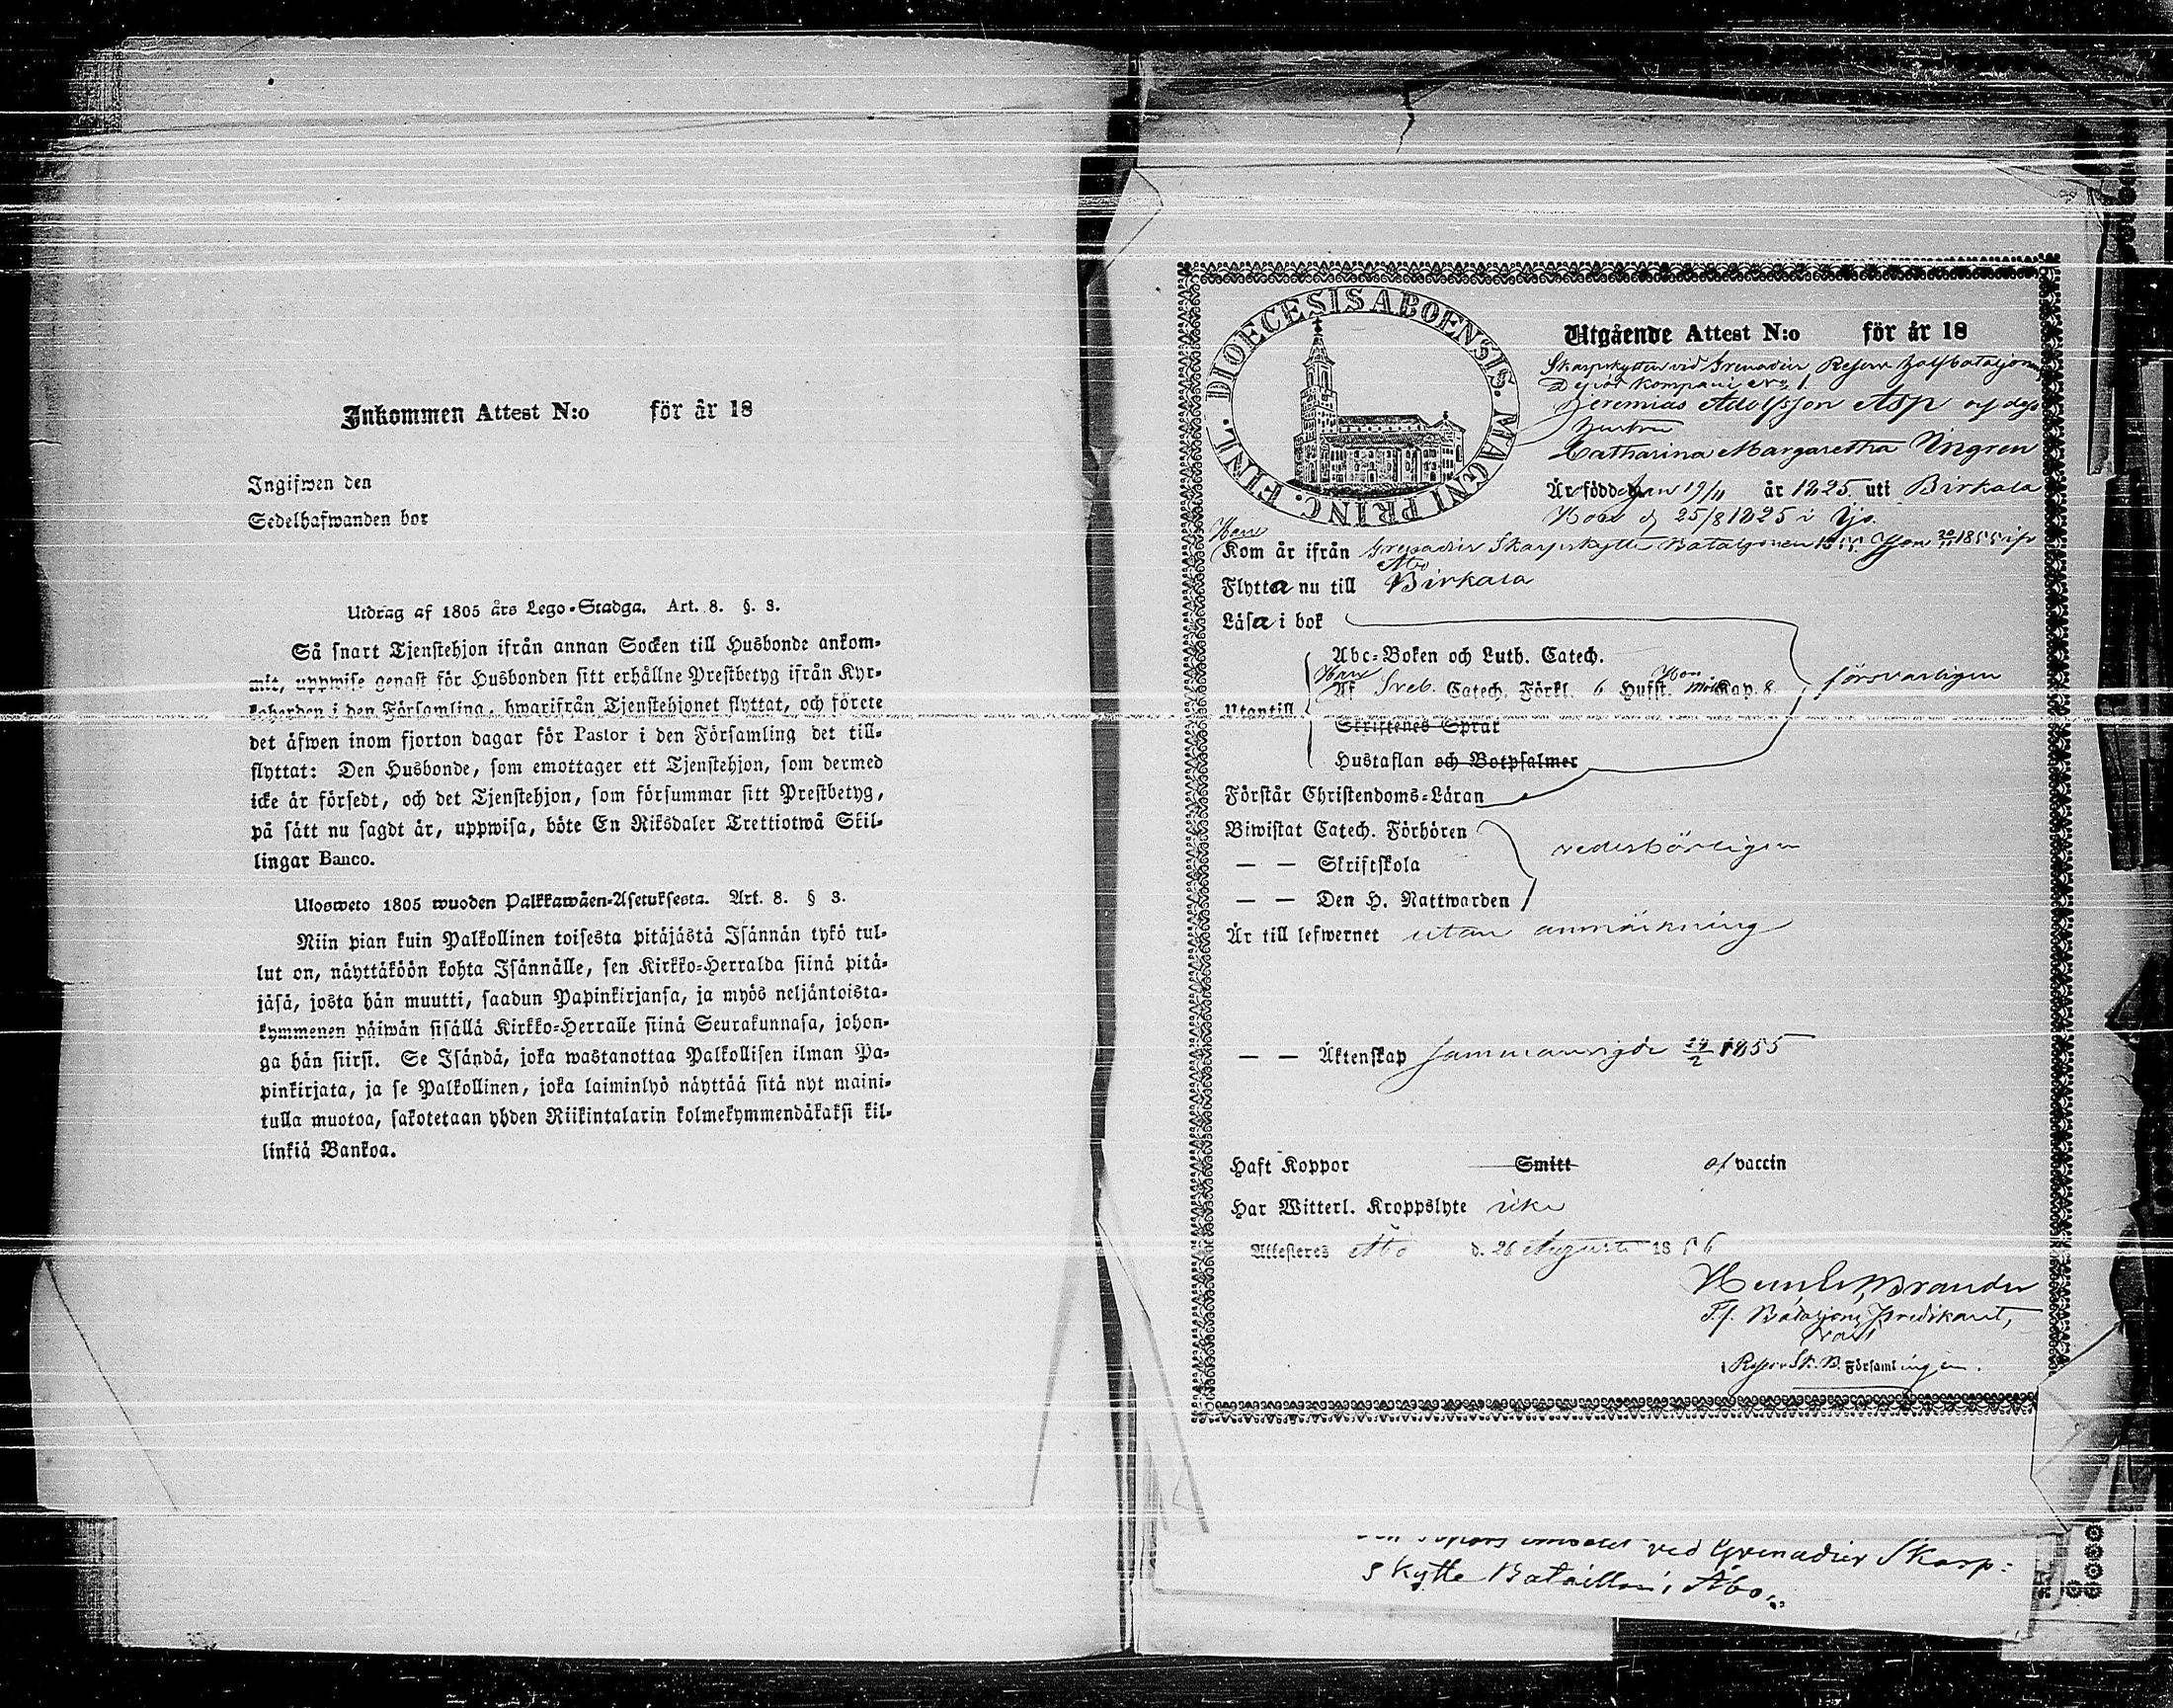 Inkommen Attest N:o för år 18
Ingifwen den
Sedelhafwanden bor
Utdrag af 1805 års Lego-Stadga. Art. 8. §. 3.
Så snart Tjenstehjon ifrån annan Socken till Husbonde ankom-
mit, uppwise genast för Husbonden sitt erhållne Prestbetyg ifrån Kyr-
koherden i den Församling, hwarifrån Tjenstehjonet flyttat, och förete
det äfwen inom fjorton dagar för Pastor i den Församling det till-
flyttat: Den Husbonde, som emottager ett Tjenstehjon, som dermed
icke är försedt, och det Tjenstehjon, som försummar sitt Prestbetyg,
på sätt nu sagdt är, uppwisa, böte En Riksdaler Trettiotwå Skil-
lingar Banco.
Ulosweto 1805 wuoden Palkkawäen-Asetuksesta. Art. 8. § 3.
Niin pian kuin Palkollinen toisesta pitäjästä Isännän tykö tul-
lut on, näyttäköön kohta Isännälle, sen Kirkko-Herralda siinä pitä-
jäsä, josta hän muutti, saadun Papinkirjansa, ja myös neljäntoista-
kymmenen päiwän sisällä Kirkko-Herralle siinä Seurakunnasa, johon-
ga hän siirsi. Se Isändä, joka wastanottaa Palkollisen ilman Pa-
pinkirjata, ja se Palkollinen, joka laiminlyö näyttää sitä nyt maini-
tulla muotoa, sakotetaan yhden Riikintalarin kolmekymmendäkaksi kil-
linkiä Bankoa.
DIOECESIS ABOENSIS. MAGNI PRINC. FINL.
Utgående Attest N:o för år 18
Skarpskytten vid Grenadier Reserv halfbataljon
Depôt Kompani N:o 1
Jeremias Adolfsson Asp och dess
hustru
Catharina Margaretha Ningren
Är född 19/11 år 1825 uti Birkala
Hon d 25/8 1825 i
Han
Kom år ifrån Grenadier Skarpskytte Bataljonen 1855 Hon 1855 ifr
Åbo
Flytta nu till Birkala
Läsa i bok
Abc-Boken och Luth. Catech.
Han Hon
Af Sveb. Catech. Förkl. 6 Hufst. Kap. 8. försvarligen
Utantill
Skriftenes Språk
Hustaflan och Botpsalmer
Förstår Christendoms-Läran
Biwistat Catech. Förhören
— — Skriftskola vederbörligen
— — Den H. Nattwarden
Är till lefwernet utan anmärkning
— — Äktenskap sammanvigde 24/2 1855
Haft Koppor Smitt af vaccin
Har Witterl. Kroppslyte icke
Attesteres Åbo d. 26 Augusti 1856
Brander
T.f. Bataljons Predikant,
i Reserv Sk. B. Församlingen.
vid Grenadier Skarp:
skytte Bataillon i Åbo.